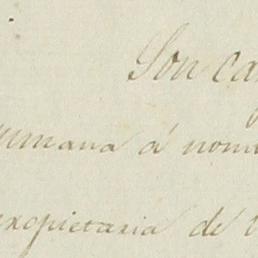 Son ca
umana á nom
expietaria de